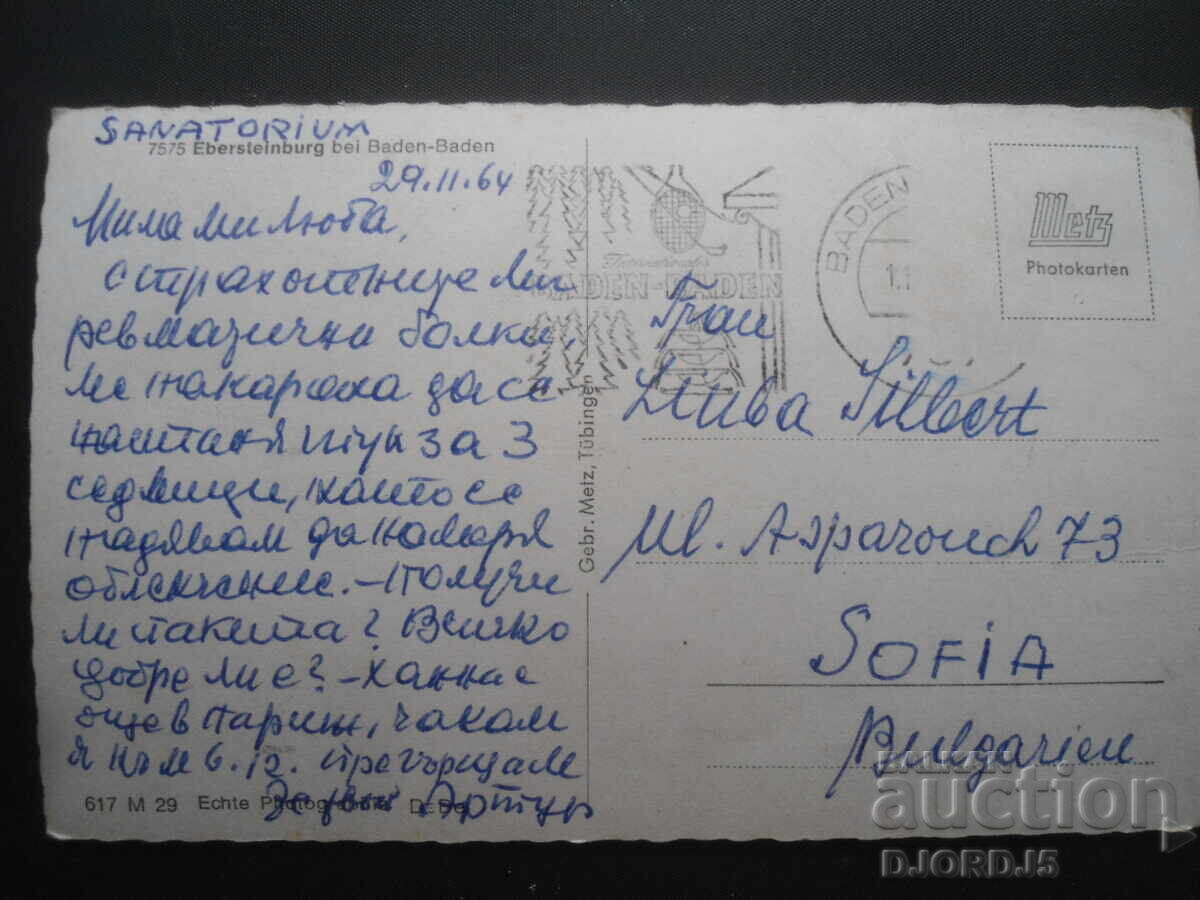 SANATORIUM
7575 Ebersteinburg bei Baden-Baden
29.11.64
Мила ми Люба,
страхотните ми
ревматични болки,
ме накараха да се
настаня тук за 3
седмици, като се
надявам да намеря
облекчение. - Получи
ли пакета? Всичко
добре ли е? - Ханна е
още в Париж, чакам
я към 6.12. Прегръщам
Артур
617 M 29 Echte Photographie
Gebr. Metz, Tübingen
BADEN-BADEN
BADEN
Metz
Photokarten
Frau
Liuba Silbert
Ul. Asparouch 73
SOFIA
Bulgarien
BALKAN
auction
DJORDJ5